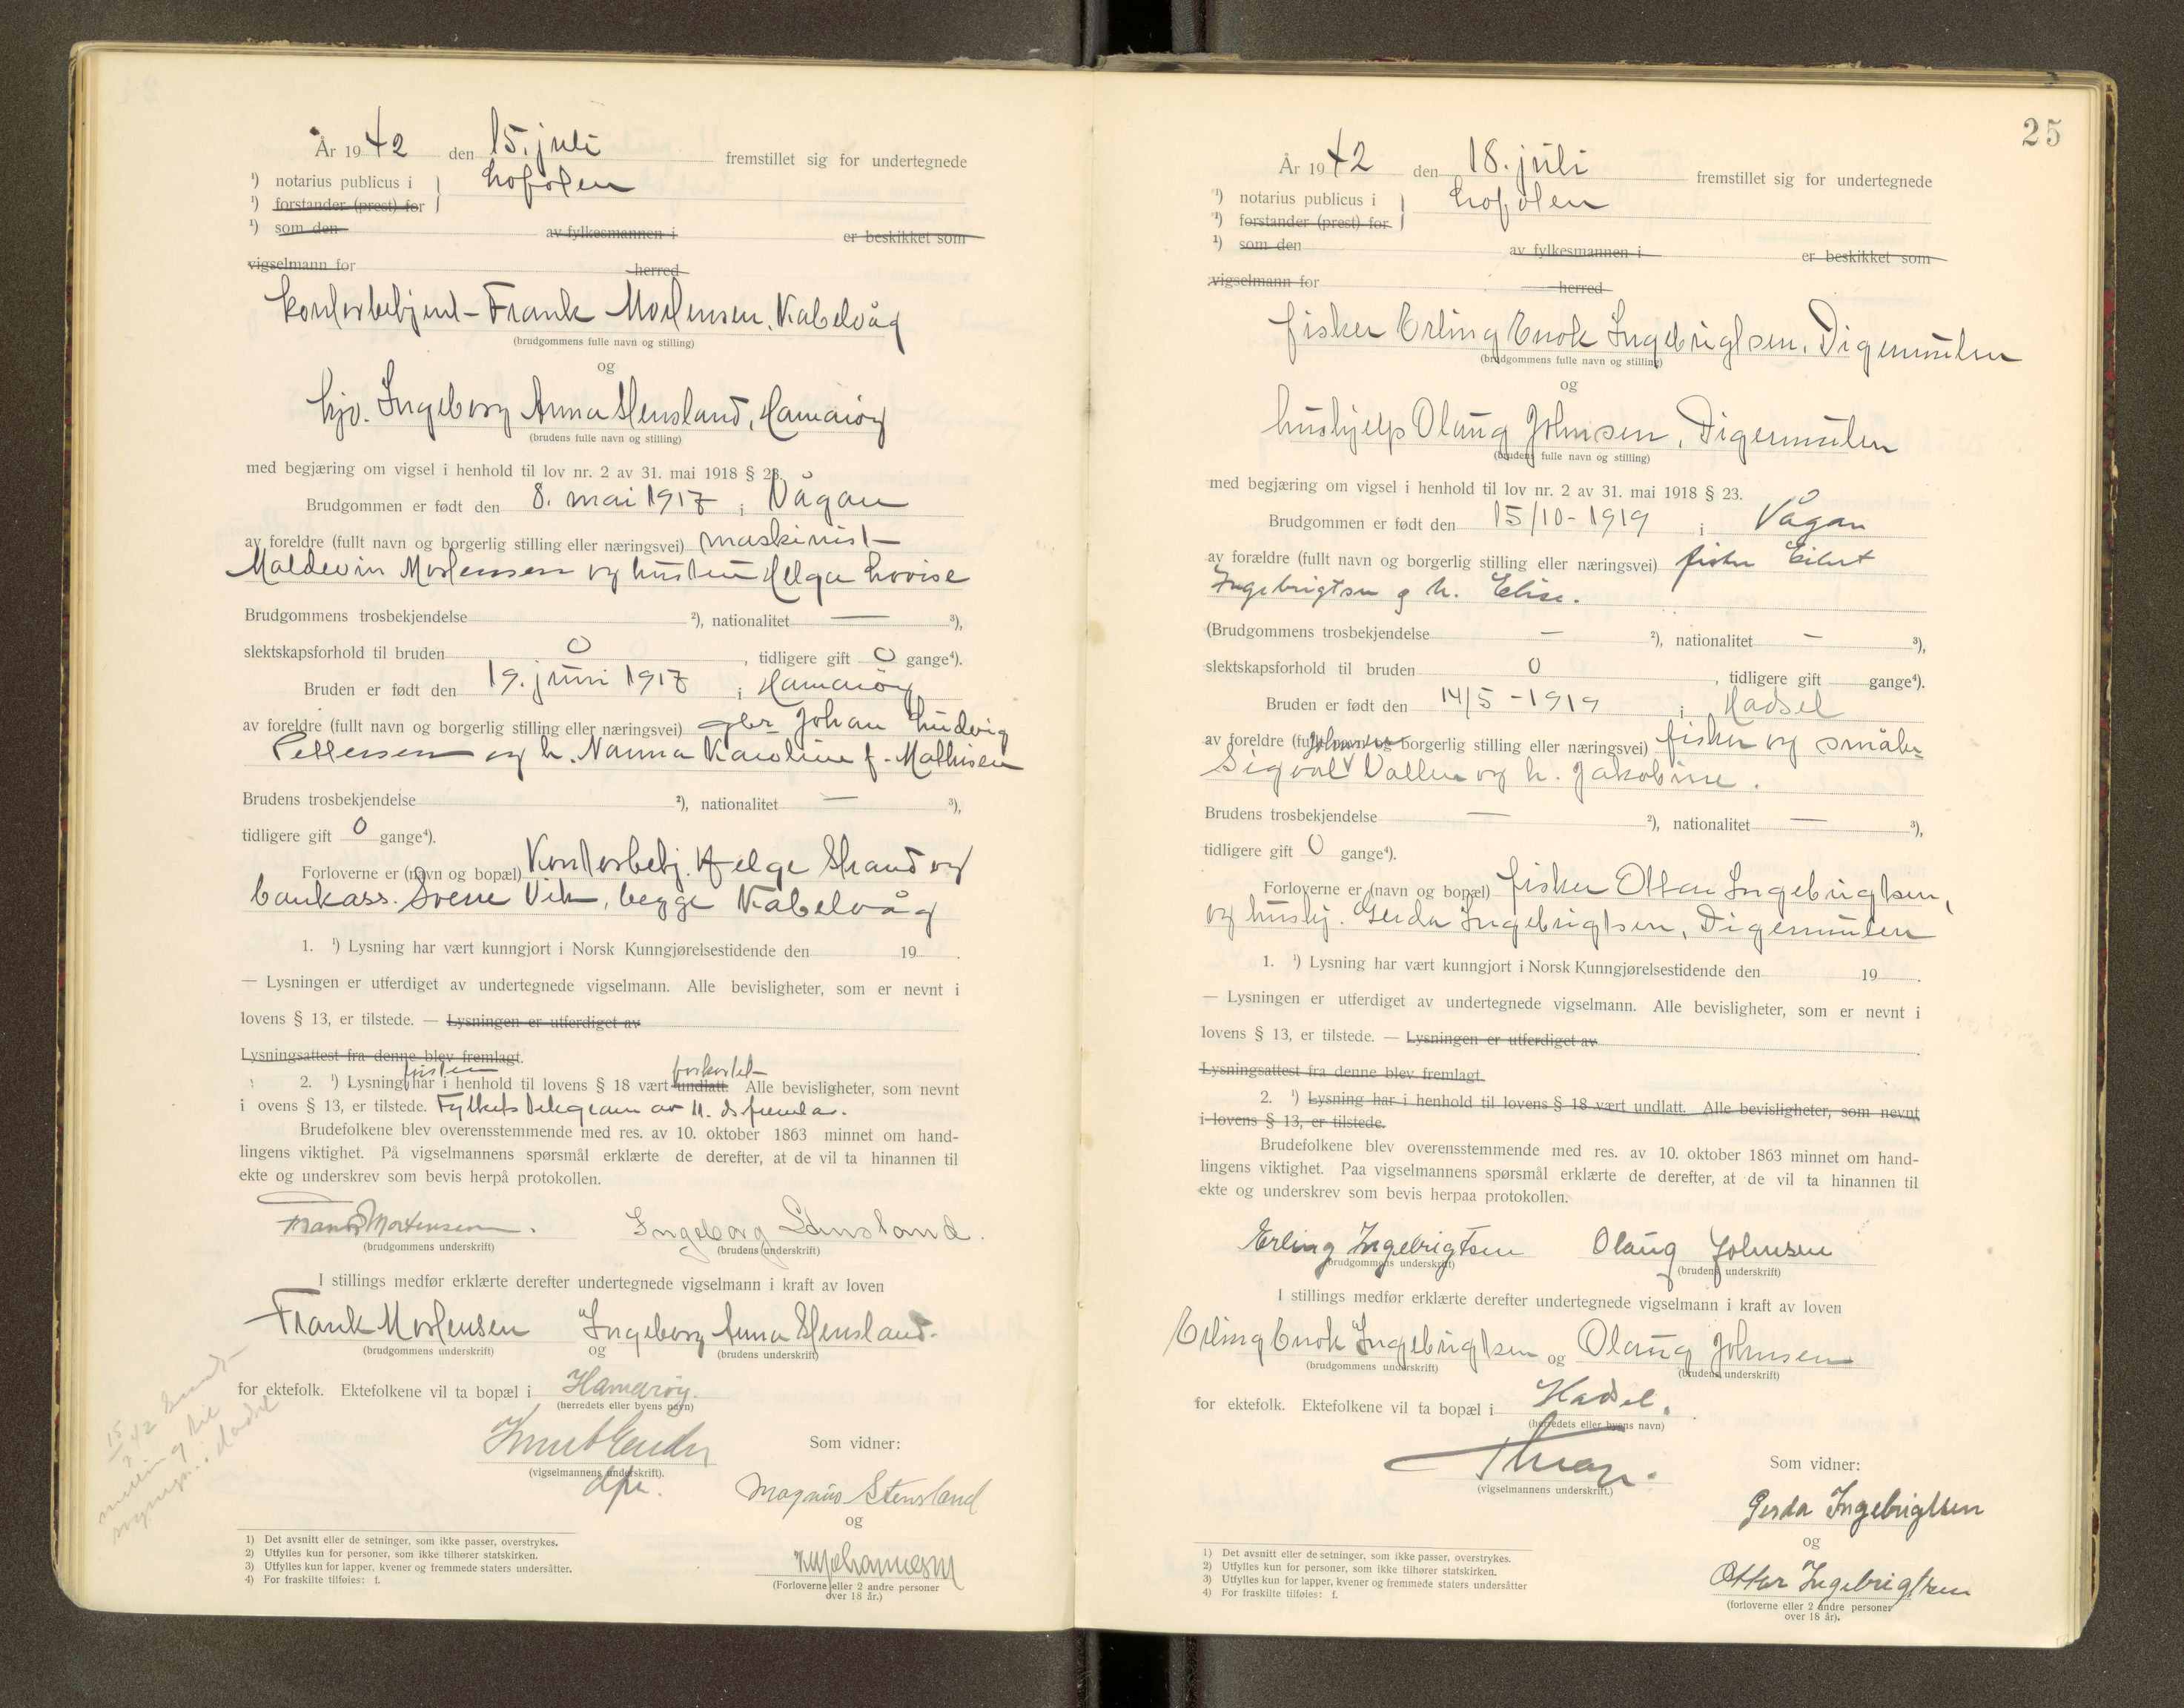 År 1942 den 15. juli fremstillet sig for undertegnede
¹) notarius publicus i Lofoten
¹) forstander (prest) for
¹) som den av fylkesmannen i er beskikket som
vigselmann for herred
kontorbetjent Frank Mortensen, Kabelvåg
(brudgommens fulle navn og stilling)
og
hjv. Ingeborg Anna Stensland, Hamarøy
(brudens fulle navn og stilling)
med begjæring om vigsel i henhold til lov nr. 2 av 31. mai 1918 § 23.
Brudgommen er født den 8. mai 1917 i Vågan
av foreldre (fullt navn og borgerlig stilling eller næringsvei) maskinist
Maldevin Mortensen og hustru Helga Lovise
Brudgommens trosbekjendelse ²), nationalitet — ³),
slektskapsforhold til bruden 0, tidligere gift 0 gange⁴).
Bruden er født den 19. juni 1917 i Hamarøy
av foreldre (fullt navn og borgerlig stilling eller næringsvei) gbr Johan Ludvig
Pettersen og h. Nanna Karoline f. Mathisen
Brudens trosbekjendelse ²), nationalitet — ³),
tidligere gift 0 gange⁴).
Forloverne er (navn og bopæl) Kontorbetj. Helge Strand og
bankass. Sverre Vik, begge Kabelvåg
1. ¹) Lysning har vært kunngjort i Norsk Kunngjørelsestidende den 19 .
— Lysningen er utferdiget av undertegnede vigselmann. Alle bevisligheter, som er nevnt i
lovens § 13, er tilstede. — Lysningen er utferdiget av
Lysningsattest fra denne blev fremlagt.
fristen forkortet
2. ¹) Lysning har i henhold til lovens § 18 vært undlatt. Alle bevisligheter, som nevnt
i ovens § 13, er tilstede. Fylkets telegram av 11. ds fremla.
Brudefolkene blev overensstemmende med res. av 10. oktober 1863 minnet om hand-
lingens viktighet. På vigselmannens spørsmål erklærte de derefter, at de vil ta hinannen til
ekte og underskrev som bevis herpå protokollen.
Frank Mortensen. Ingeborg Stensland.
(brudgommens underskrift) (brudens underskrift)
I stillings medfør erklærte derefter undertegnede vigselmann i kraft av loven
Frank Mortensen og Ingeborg Anna Stensland.
(brudgommens underskrift) (brudens underskrift)
for ektefolk. Ektefolkene vil ta bopæl i Hamarøy.
(herredets eller byens navn)
15/7 42 sendt
melding til
sognepr. i Hadsel
(vigselmannens underskrift).
Som vidner:
Magnus Stensland
og
(Forloverne eller 2 andre personer
over 18 år.)
1) Det avsnitt eller de setninger, som ikke passer, overstrykes.
2) Utfylles kun for personer, som ikke tilhører statskirken.
3) Utfylles kun for lapper, kvener og fremmede staters undersåtter.
4) For fraskilte tilføies: f.
25
År 1942 den 18. juli fremstillet sig for undertegnede
¹) notarius publicus i Lofoten
¹) forstander (prest) for
¹) som den av fylkesmannen i er beskikket som
vigselmann for herred
fisker Erling Enok Ingebrigtsen, Digermulen
(brudgommens fulle navn og stilling)
og
hushjelp Olaug Johnsen, Digermulen
(brudens fulle navn og stilling)
med begjæring om vigsel i henhold til lov nr. 2 av 31. mai 1918 § 23.
Brudgommen er født den 15/10-1919 i Vågan
av forældre (fullt navn og borgerlig stilling eller næringsvei) fisker Eilert
Ingebrigtsen og h. Elise.
(Brudgommens trosbekjendelse — ²), nationalitet — ³),
slektskapsforhold til bruden 0, tidligere gift gange⁴).
Bruden er født den 14/5-1919 i Hadsel
av foreldre (fullt navn og borgerlig stilling eller næringsvei) fisker og småbr
Johnsen
Sigval Vollen og h. Jakobine.
Brudens trosbekjendelse — ²), nationalitet — ³),
tidligere gift 0 gange⁴).
Forloverne er (navn og bopæl) fisker Ottar Ingebrigtsen,
og hushj. Gerda Ingebrigtsen, Digermulen
1. ¹) Lysning har vært kunngjort i Norsk Kunngjørelsestidende den 19 .
— Lysningen er utferdiget av undertegnede vigselmann. Alle bevisligheter, som er nevnt i
lovens § 13, er tilstede. — Lysningen er utferdiget av .
Lysningsattest fra denne blev fremlagt.
2. ¹) Lysning har i henhold til lovens § 18 vært undlatt. Alle bevisligheter, som nevnt
i lovens § 13, er tilstede.
Brudefolkene blev overensstemmende med res. av 10. oktober 1863 minnet om hand-
lingens viktighet. Paa vigselmannens spørsmål erklærte de derefter, at de vil ta hinannen til
ekte og underskrev som bevis herpaa protokollen.
Erling Ingebrigtsen Olaug Johnsen
(brudgommens underskrift) (brudens underskrift)
I stillings medfør erklærte derefter undertegnede vigselmann i kraft av loven
Erling Enok Ingebrigtsen og Olaug Johnsen
(brudgommens underskrift) (brudens underskrift)
for ektefolk. Ektefolkene vil ta bopæl i Hadsel.
(herredets eller byens navn)
(vigselmannens underskrift.)
Som vidner:
Gerda Ingebrigtsen
og
Ottar Ingebrigtsen
(forloverne eller 2 andre personer
over 18 år).
1) Det avsnitt eller de setninger, som ikke passer, overstrykes.
2) Utfylles kun for personer, som ikke tilhører statskirken.
3) Utfylles kun for lapper, kvener og fremmede staters undersåtter
4) For fraskilte tilføies: f.